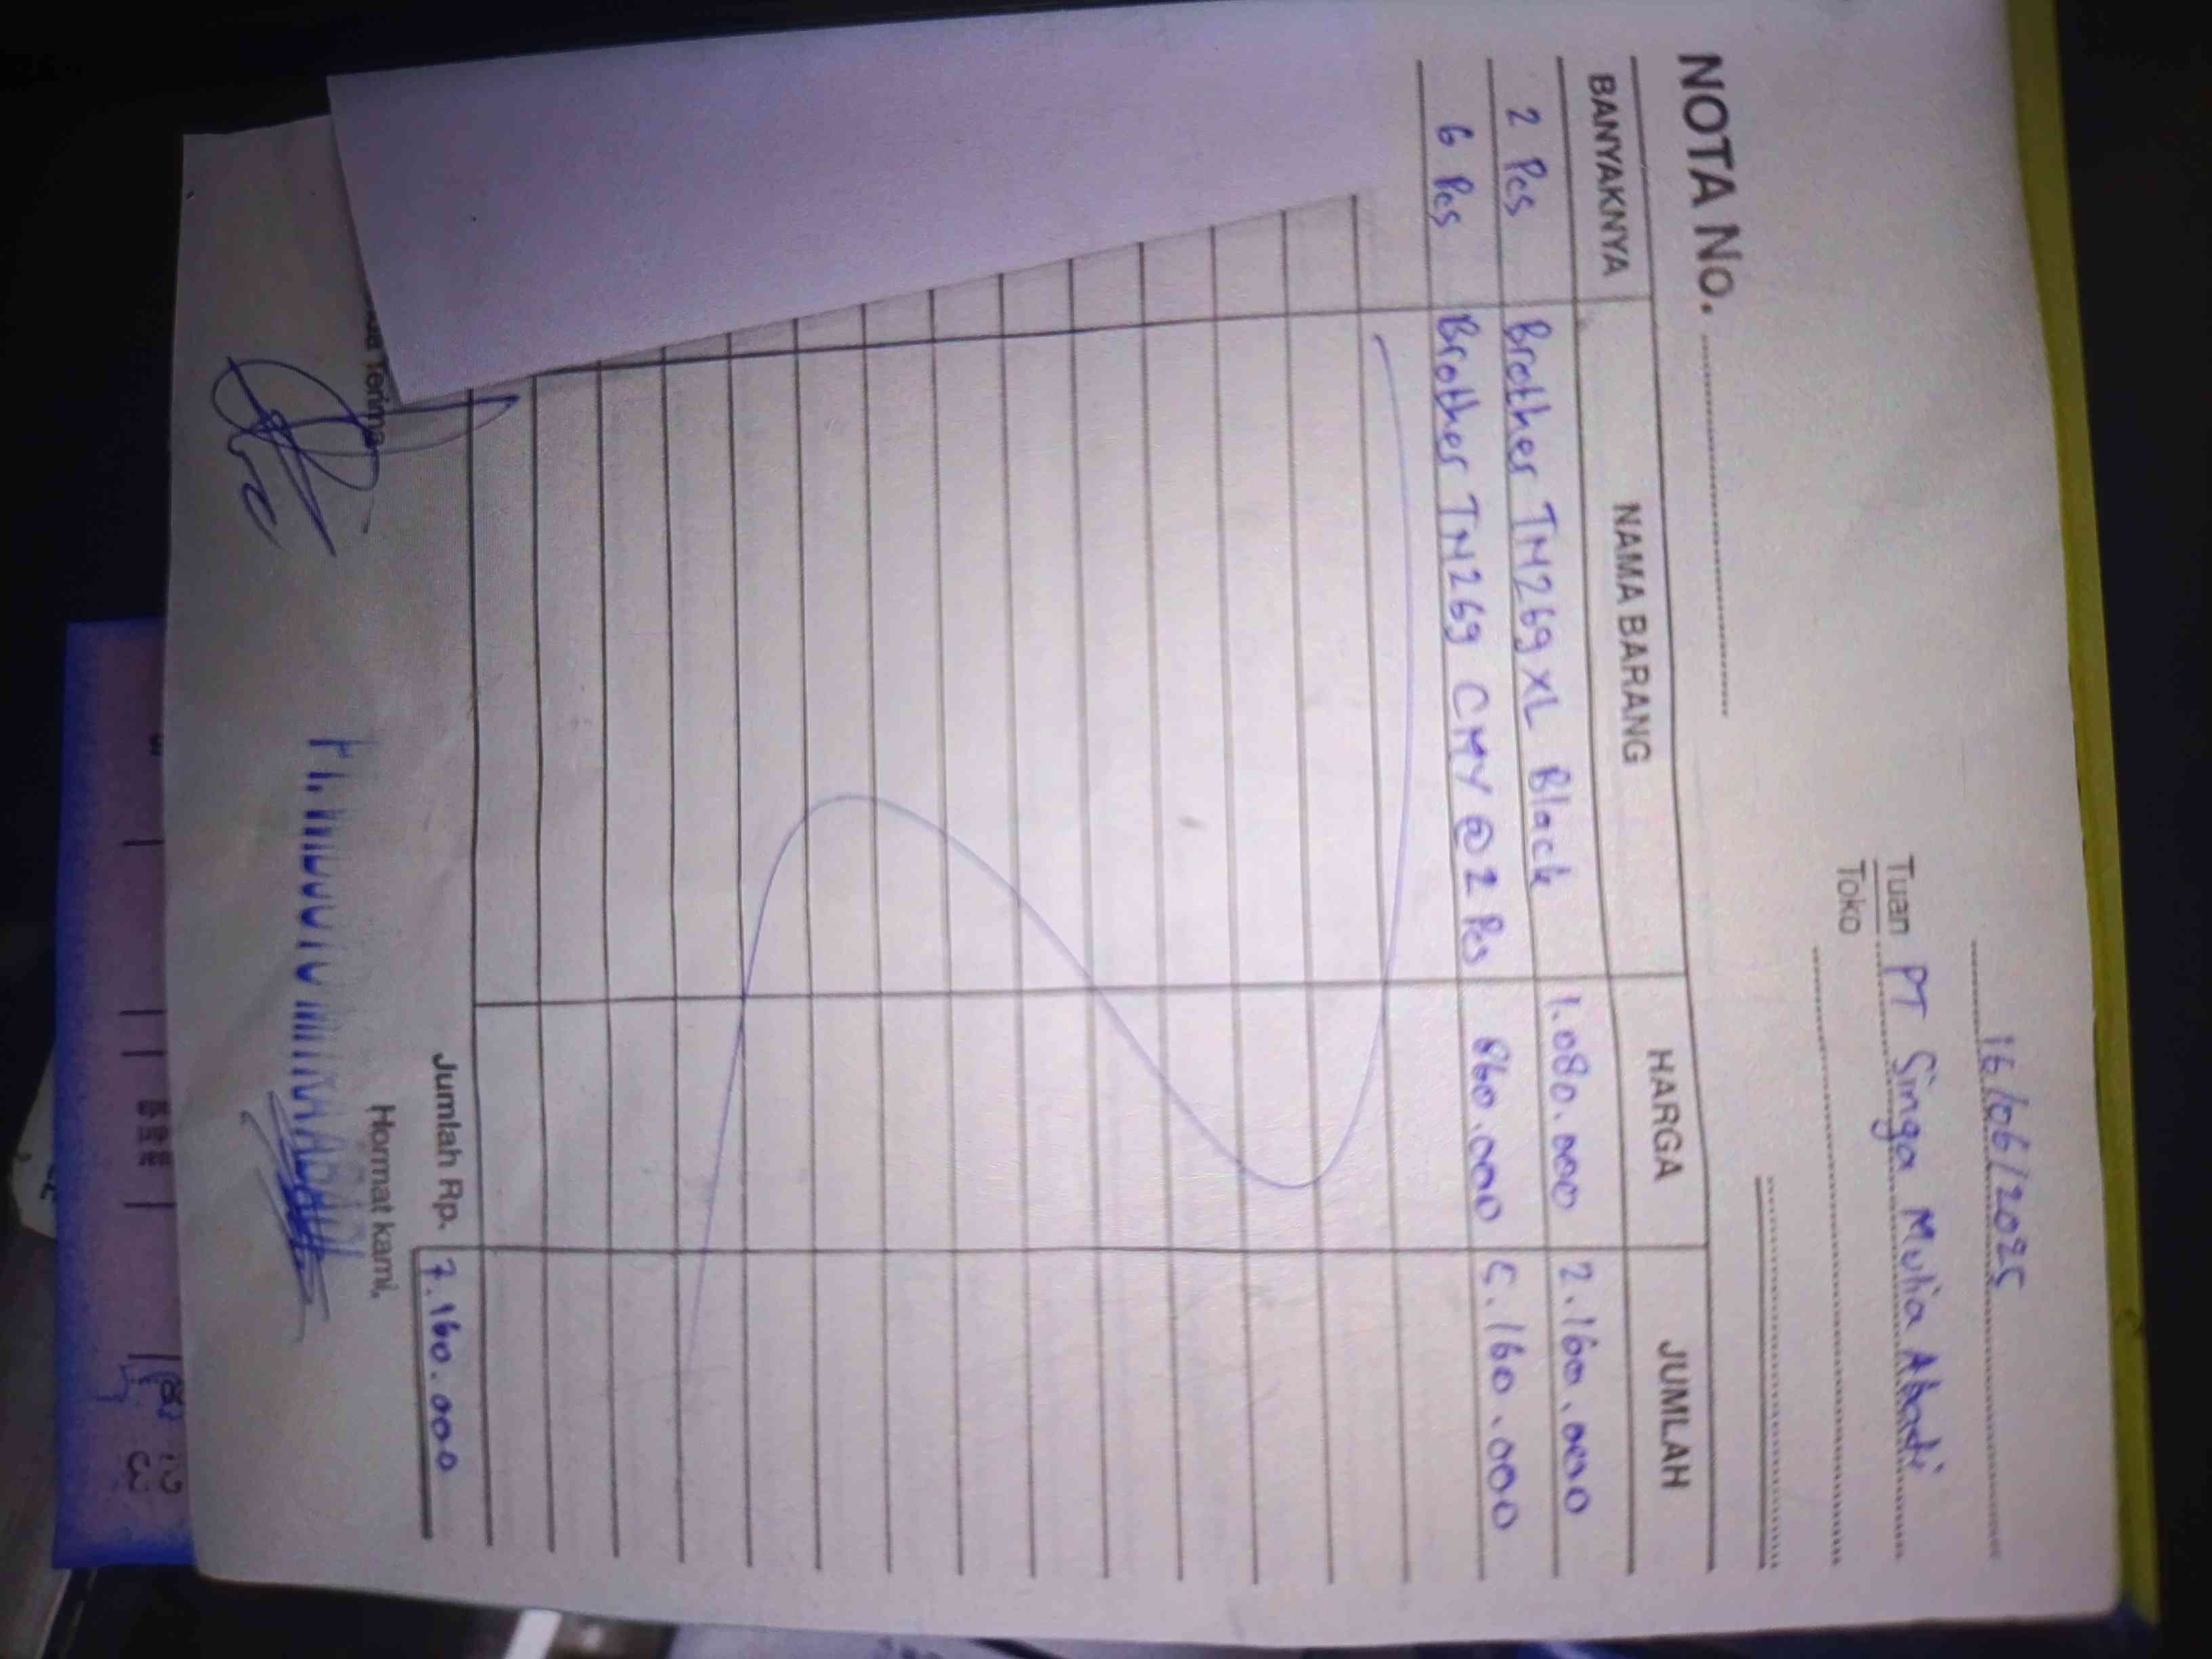 16/06/2025
Tuan PT Singa Mulia Abadi
Toko
NOTA No.
BANYAKNYA NAMA BARANG HARGA JUMLAH
2 Pcs Brother TN269 XL Black 1.080.000 2.160.000
6 Pcs Brother TN269 CMY @ 2 Pcs 860.000 5.160.000
Jumlah Rp. 7.160.000
Terima Hormat kami,